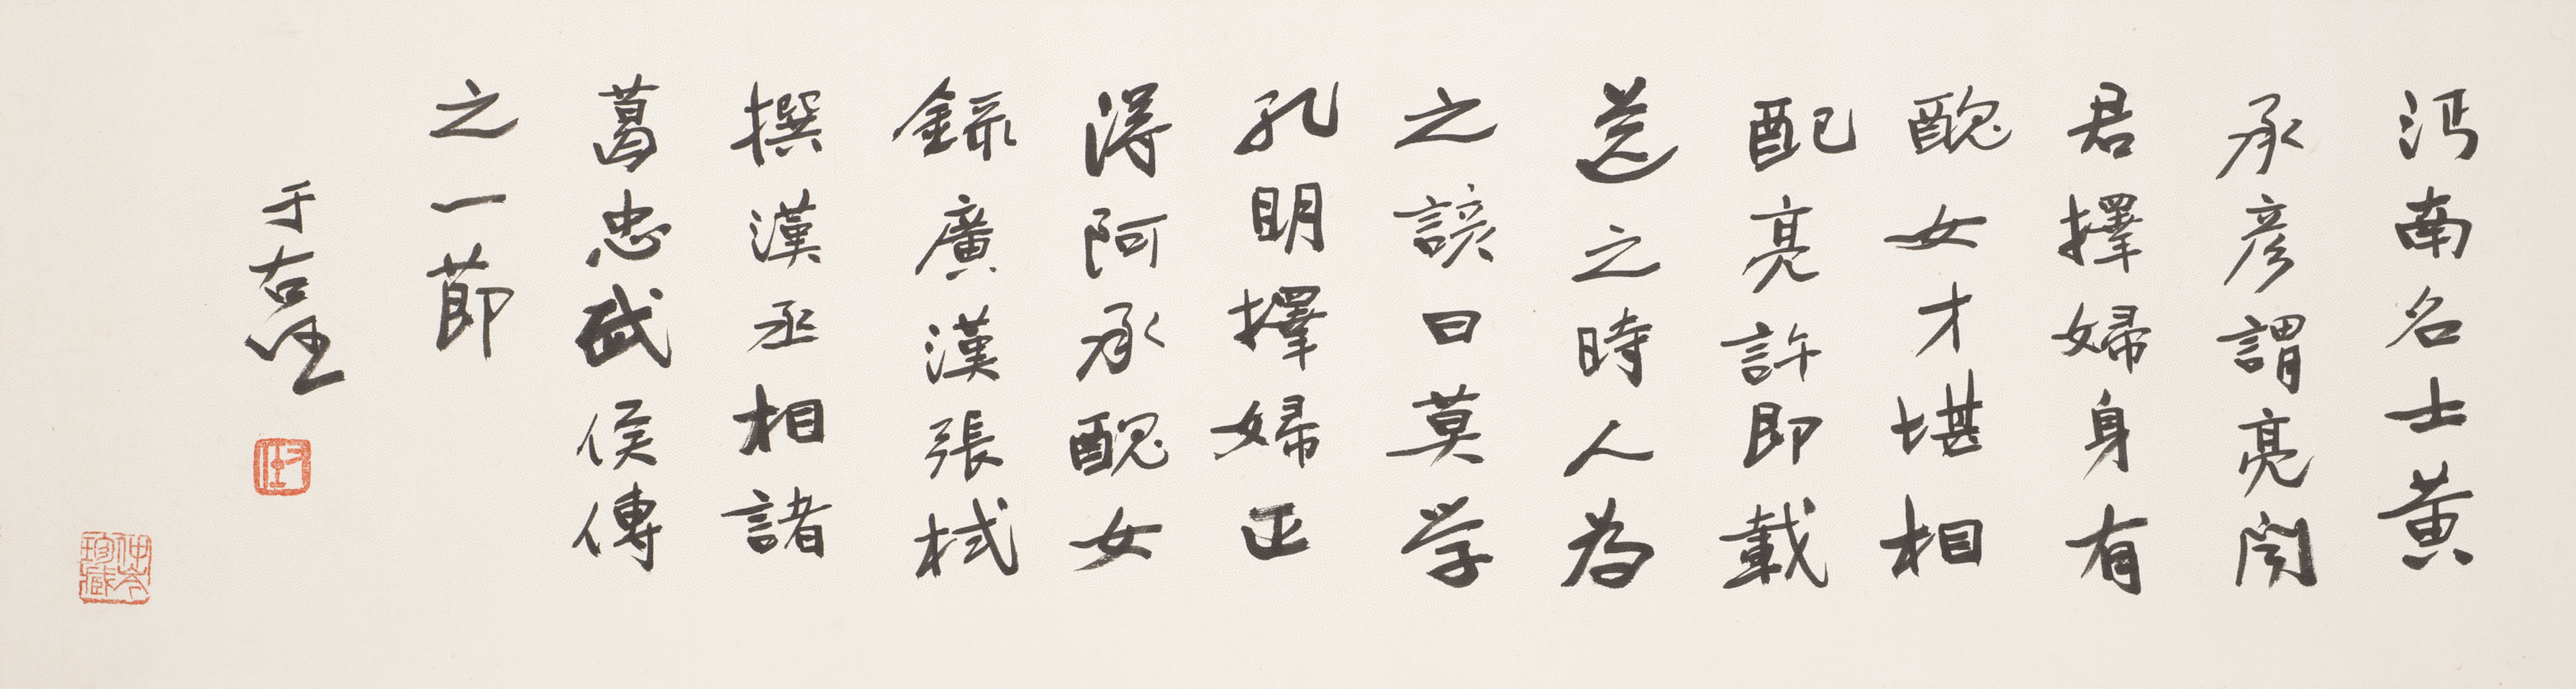 沔南名士黃
承彥謂亮聞
君擇婦身有
醜女才堪相
配亮許即載
送之時人為
之諺曰莫学
孔明擇婦正
得阿承醜女
錄廣漢張栻
撰漢丞相諸
葛忠武侯傳
之一節
于右任
右任